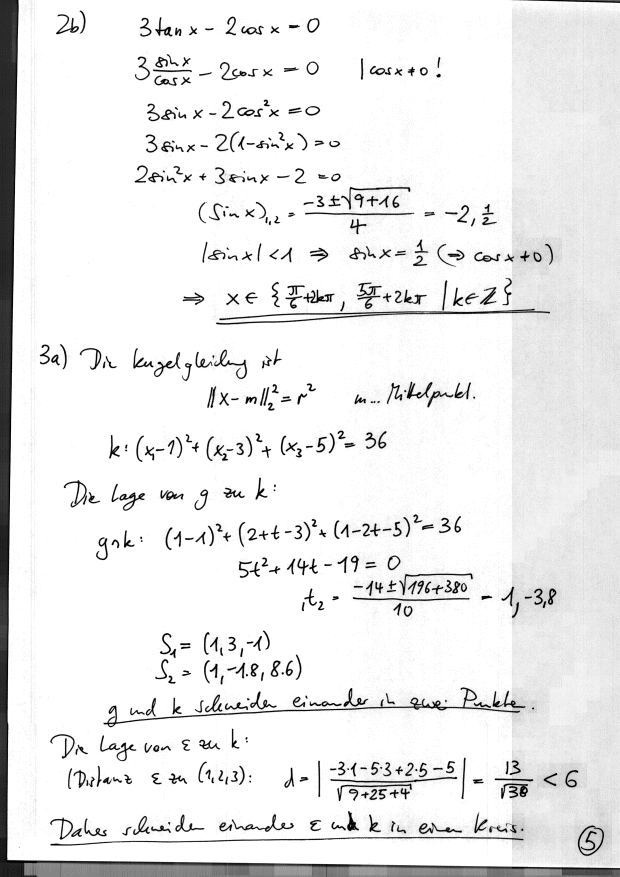 2b) 3 tan x - 2 cos x = 0
3 sin x / cos x - 2 cos x = 0 | cos x ≠ 0 !
3 sin x - 2 cos²x = 0
3 sin x - 2(1 - sin²x) = 0
2 sin²x + 3 sin x - 2 = 0
(sin x)₁,₂ = (-3 ± √(9+16)) / 4 = -2, 1/2
|sin x| < 1 ⇒ sin x = 1/2 (⇒ cos x ≠ 0)
⇒ x ∈ {π/6 + 2kπ, 5π/6 + 2kπ | k ∈ Z}
3a) Die Kugelgleichung ist
||x - m||₂² = r² m... Mittelpunkt.
k: (x₁-1)² + (x₂-3)² + (x₃-5)² = 36
Die Lage von g zu k:
g∩k: (1-1)² + (2+t-3)² + (1-2t-5)² = 36
5t² + 14t - 19 = 0
,t₂ = (-14 ± √(196+380)) / 10 = 1, -3,8
S₁ = (1, 3, -1)
S₂ = (1, -1.8, 8.6)
g und k schneiden einander in zwei Punkte.
Die Lage von ε zu k:
(Distanz ε zu (1,2,3): d = |(-3·1 - 5·3 + 2·5 - 5) / √(9+25+4)| = 13/√38 < 6
Daher schneiden einander ε und k in einen Kreis.
5